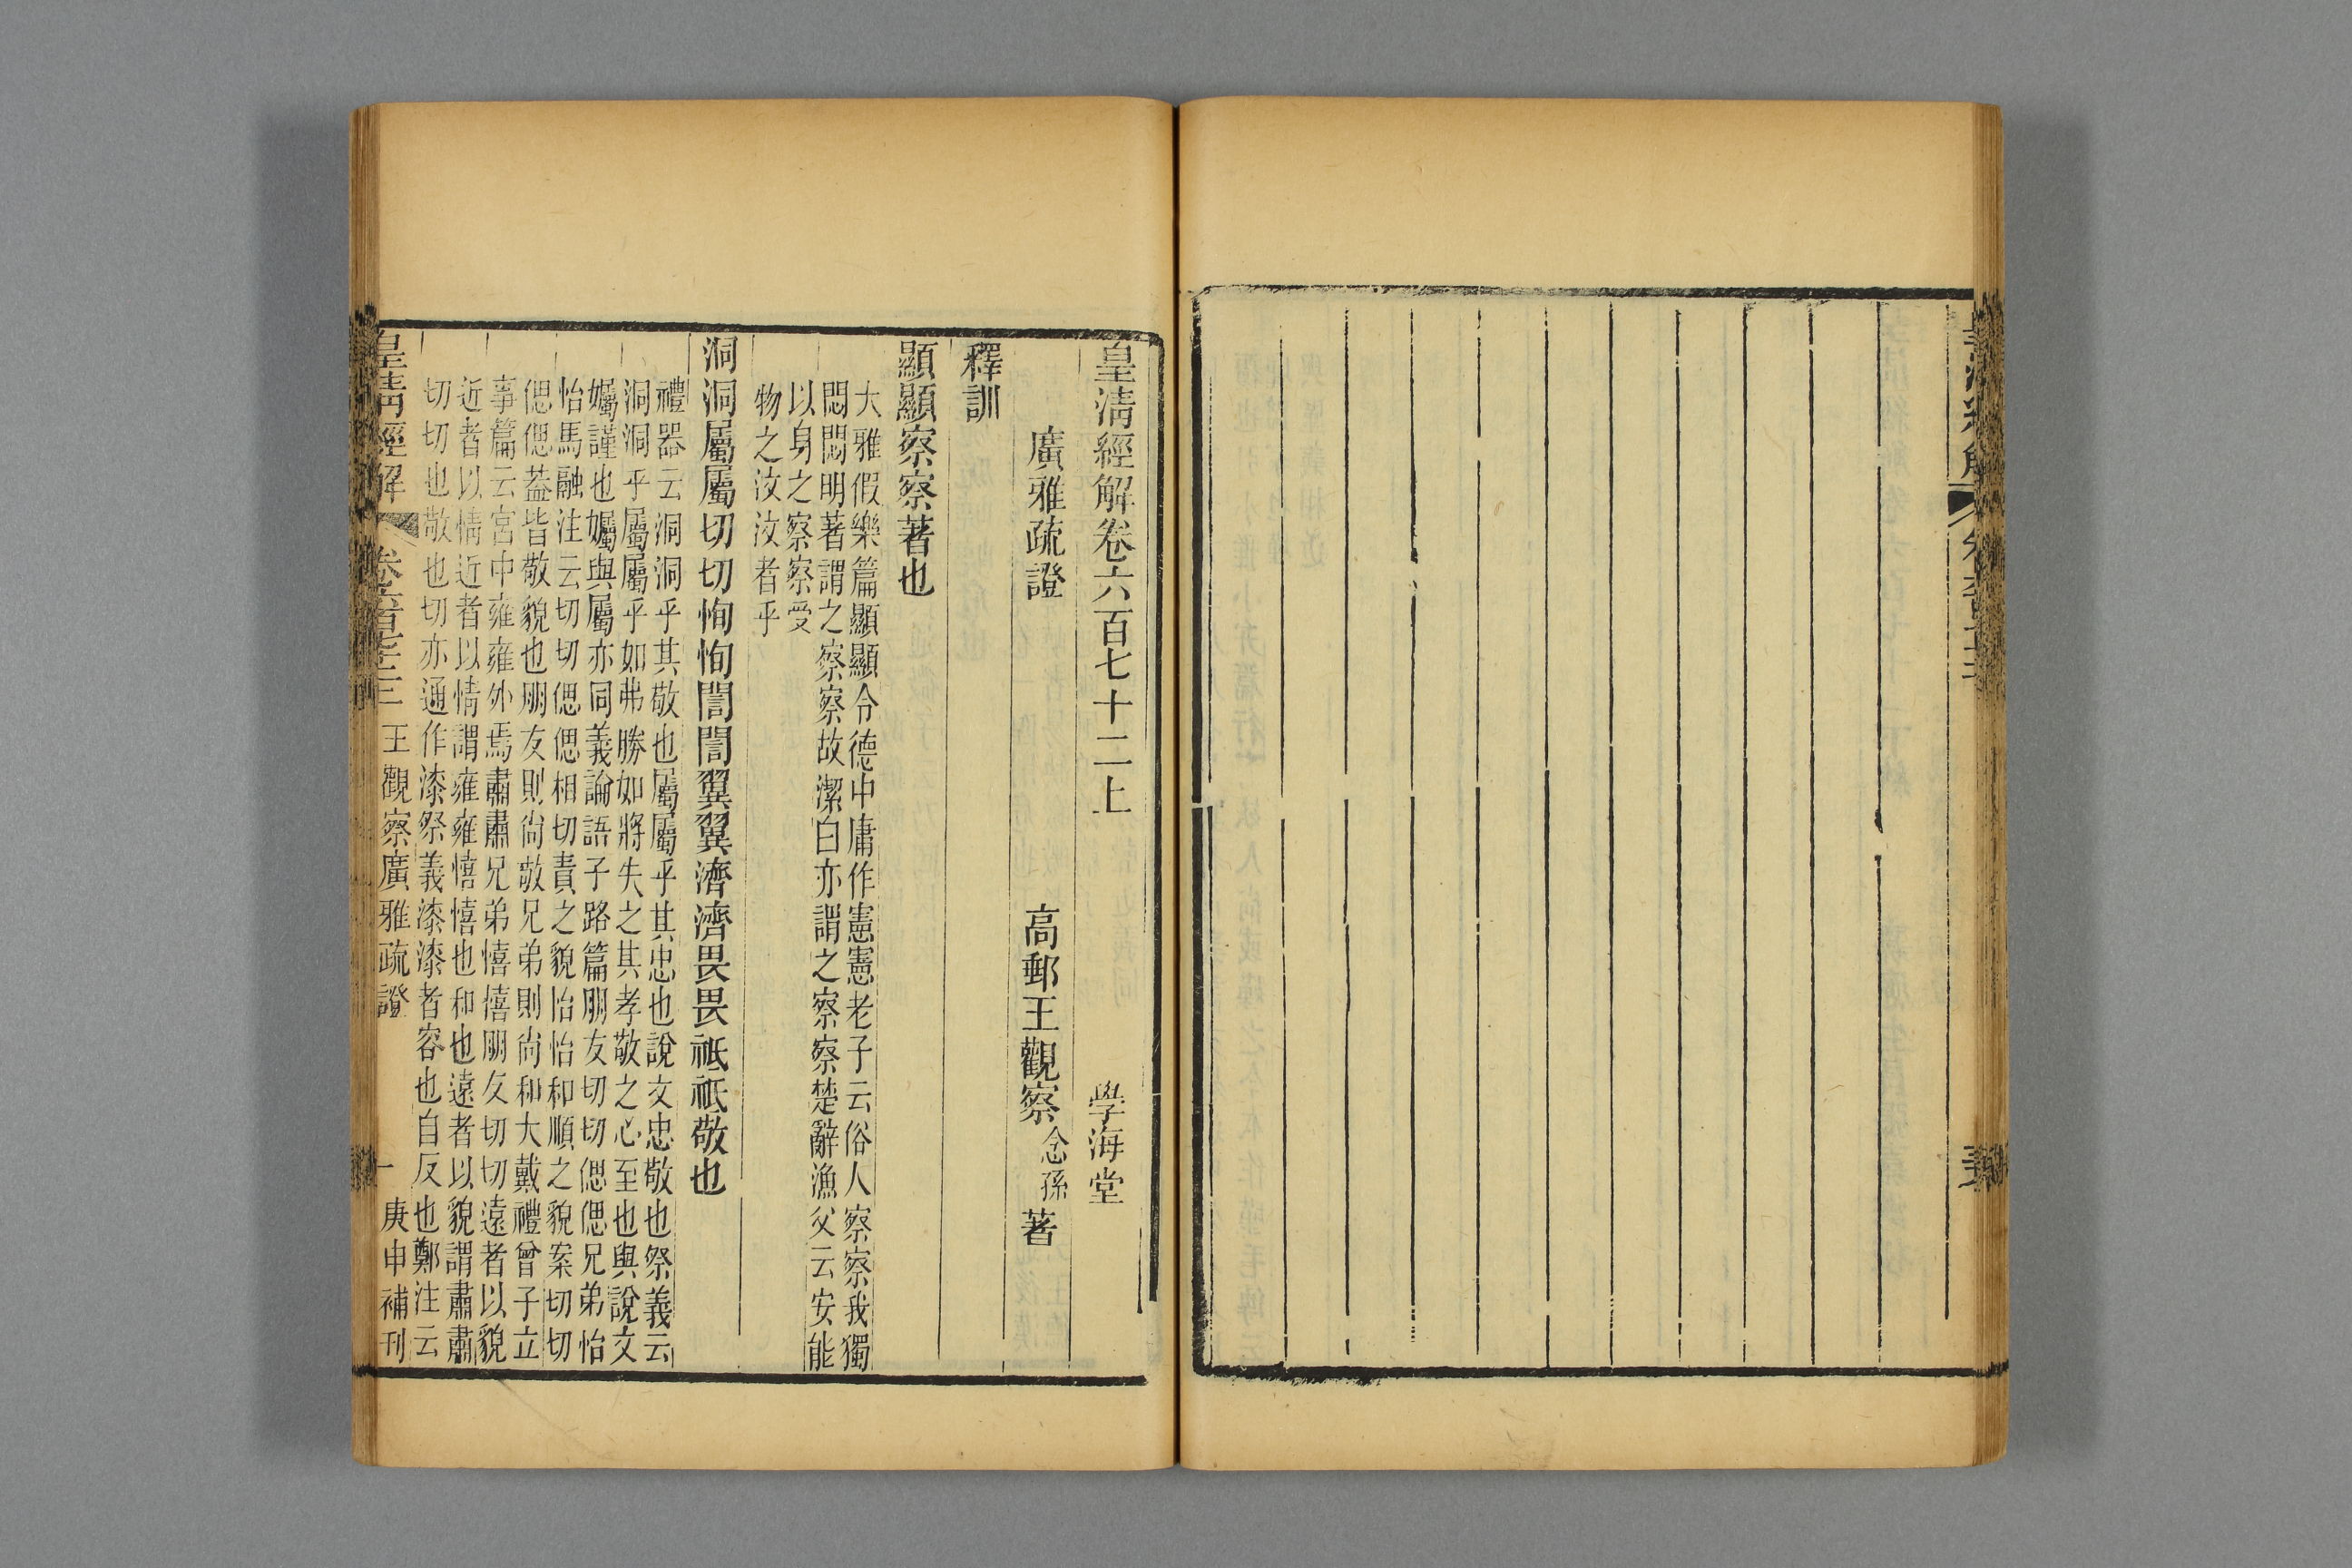 皇清經解卷六百七十二上
學海堂
廣雅疏證
高郵王觀察念孫著
釋訓
顯顯察察著也
大雅假樂篇顯顯令德中庸作憲憲老子云俗人察察我獨
悶悶明著謂之察察故潔白亦謂之察察楚辭漁父云安能
以身之察察受
物之汶汶者乎
洞洞屬屬切切恂恂誾誾翼翼濟濟畏畏祗祗敬也
禮器云洞洞乎其敬也屬屬乎其忠也說文忠敬也祭義云
洞洞乎屬屬乎如弗勝如將失之其孝敬之心至也與說文
孎謹也孎與屬亦同義論語子路篇朋友切切偲偲兄弟怡
怡馬融注云切切偲偲相切責之貌怡怡和順之貌案切切
偲偲葢皆敬貌也朋友則尙敬兄弟則尙和大戴禮曾子立
事篇云宮中雍雍外焉肅肅兄弟憘憘朋友切切遠者以貌
近者以情近者以情謂雍雍憘憘也和也遠者以貌謂肅肅
切切也敬也切亦通作漆祭義漆漆者容也自反也鄭注云
皇清經解
卷六百七十二
王觀察廣雅疏證
一
庚申補刊